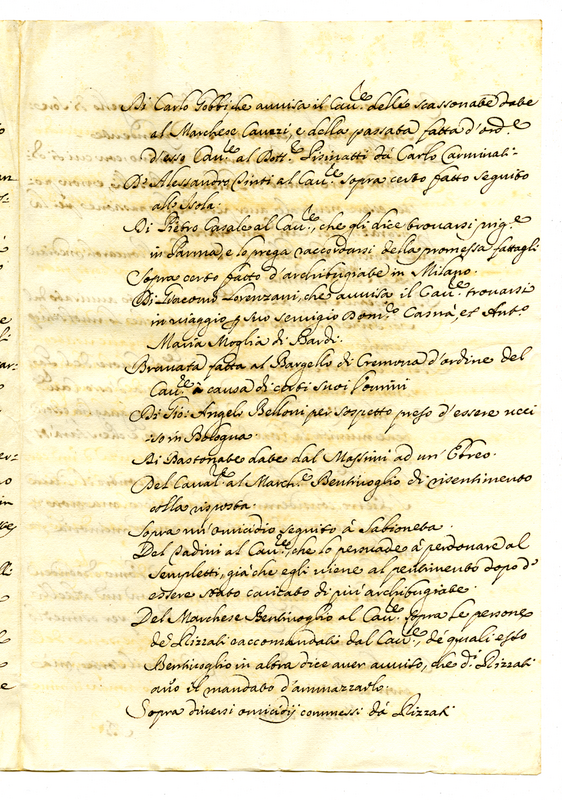 Di Carlo Gobbi che avvisa il Cau.re delle scassonate date
al Marchese Caueri, e della passata fatta d'ord.e
d'esso Cau.re al Dott.e Pisinatti dà Carlo Carminati.
Di Alessandro Pinti al Cau.re sopra certo fatto seguito
all'Isola.
Di Pietro Casale al Cau.re, che gli dice trovarsi prig.e
in Parma, e lo prega raccordarsi della promessa fattagli
Sopra certo fatto d'archibugiate in Milano.
Di Giacomo Lorenzani, che avvisa il Cau.re trovarsi
in viaggio p suo servigio Dom.co Casna, et Ant.o
Maria Moglia di Bardi.
Bravata fatta al Bargello di Cremona d'ordine del
Cau.re à causa di certi suoi huomini
Di Gio: Angelo Belloni per sospetto preso d'essere ucci
so in Bologna.
Di Bastonate date dal Massini ad un' Ebreo.
Del Caval.re al March.e Bentivoglio di risentimento
colla risposta.
Sopra un'omicidio seguito à Sabioneta.
Del Padini al Cau.re, che lo persuade à perdonare al
Sempletti, già che egli viene al pentimento dopo d'
essere stato caricato di più archibugiate
Del Marchese Bentivoglio al Cau.re sopra le persone
de Rizzati raccomandati dal Cau.re, de quali esso
Bentivoglio in altra dice aver avviso, che d.i Rizzati
avño il mandato d'ammazzarlo.
Sopra diversi omicidij commessi dà Rizzati